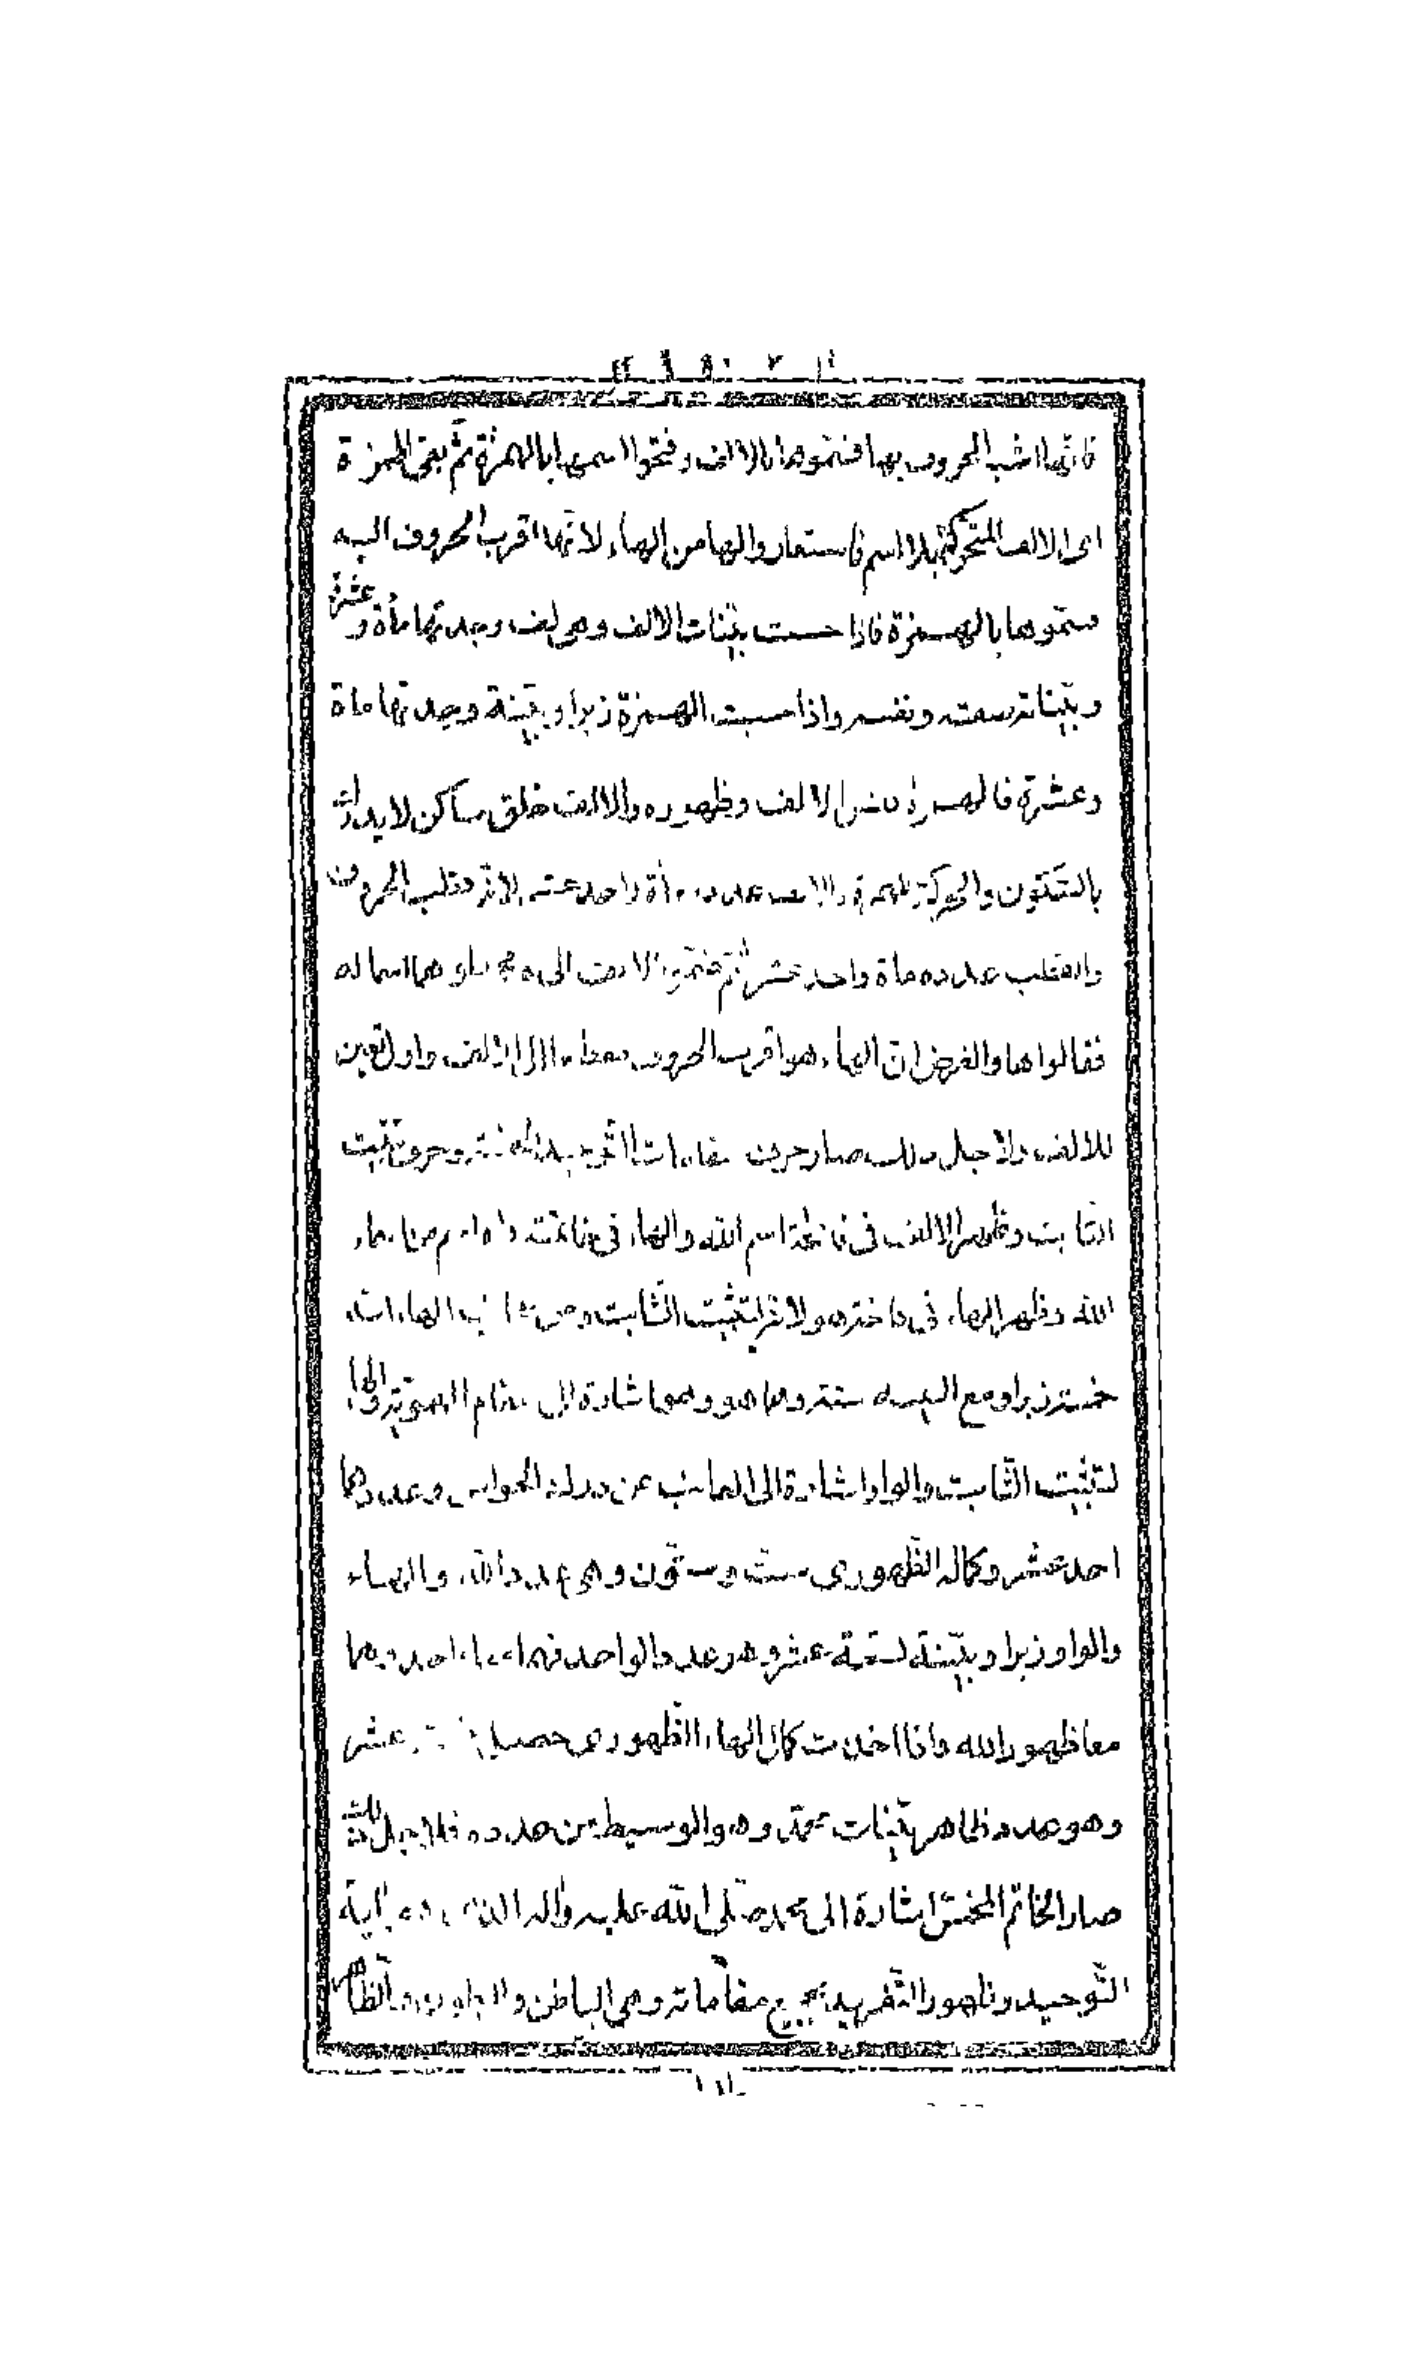 فانّها اشبه الحروف بها فسمّوها بالالف وفتحوا اسمها بالهمزة ثمّ بقى الهمزة
اى الالف المتحرّكة بلا اسم فاستعاروا لها من الهاء لانّها اقرب الحروف اليه
فسمّوها بالهمزة فاذا حسبت بيّنات الالف وهى لف وجدتها مأة وعشرة
وبيّناته سمته ونفسه واذا حسبت الهمزة زبرا وبيّنة وجدتها ماة
وعشرة فالهمزة نفس الالف وظهوره والالف خلق ساكن لا يدرك
بالسّكون والحركة للهمزة والالف عدده مأة واحد عشر لانّه قطب الحروف
والقطب عدده ماة واحد عشر ثم ضمّوا الالف الى وجعلوهما اسما له
فقالوا ها والغرض ان الهاء هو اقرب الحروف الى الالف واول تعين
للالف ولاجل ذلك صار حرف مقامات التّوحيد وحرف تثبيت
الثّابت وظهر الالف فى فاتحة اسم الله والهاء فى خاتمته
الله وظهر الهاء فى فاختره هو لانّه لتثبيت الثّابت الهاءات
خمسة زبرا ومع البينة ستة وهما هو وهما اشارة الى مقام الهويّة والهاء
لتثبيت الثّابت والواو اشارة الى الغائب عن درك الحواس وعددهما
احد عشر وكماله الظّهورى ستّ وستّون وهى عدد الله والهاء
والواو زبرا وبيّنة تسعة عشر وهو عدد الواحد فهما احد وهما
معا ظهور الله واذا اخذت كمال الهاء الظّهورى حصل خمسة عشر
وهو عدد ظاهر بيّنات محمّد وهو الوسيط من عدده فلاجل ذلك
صار الخاتم المخمّس اشارة الى محمد صلّى الله عليه واله آية
التّوحيد وظهور التّفريد بجميع مقاماته وهى الباطن والظّاهر